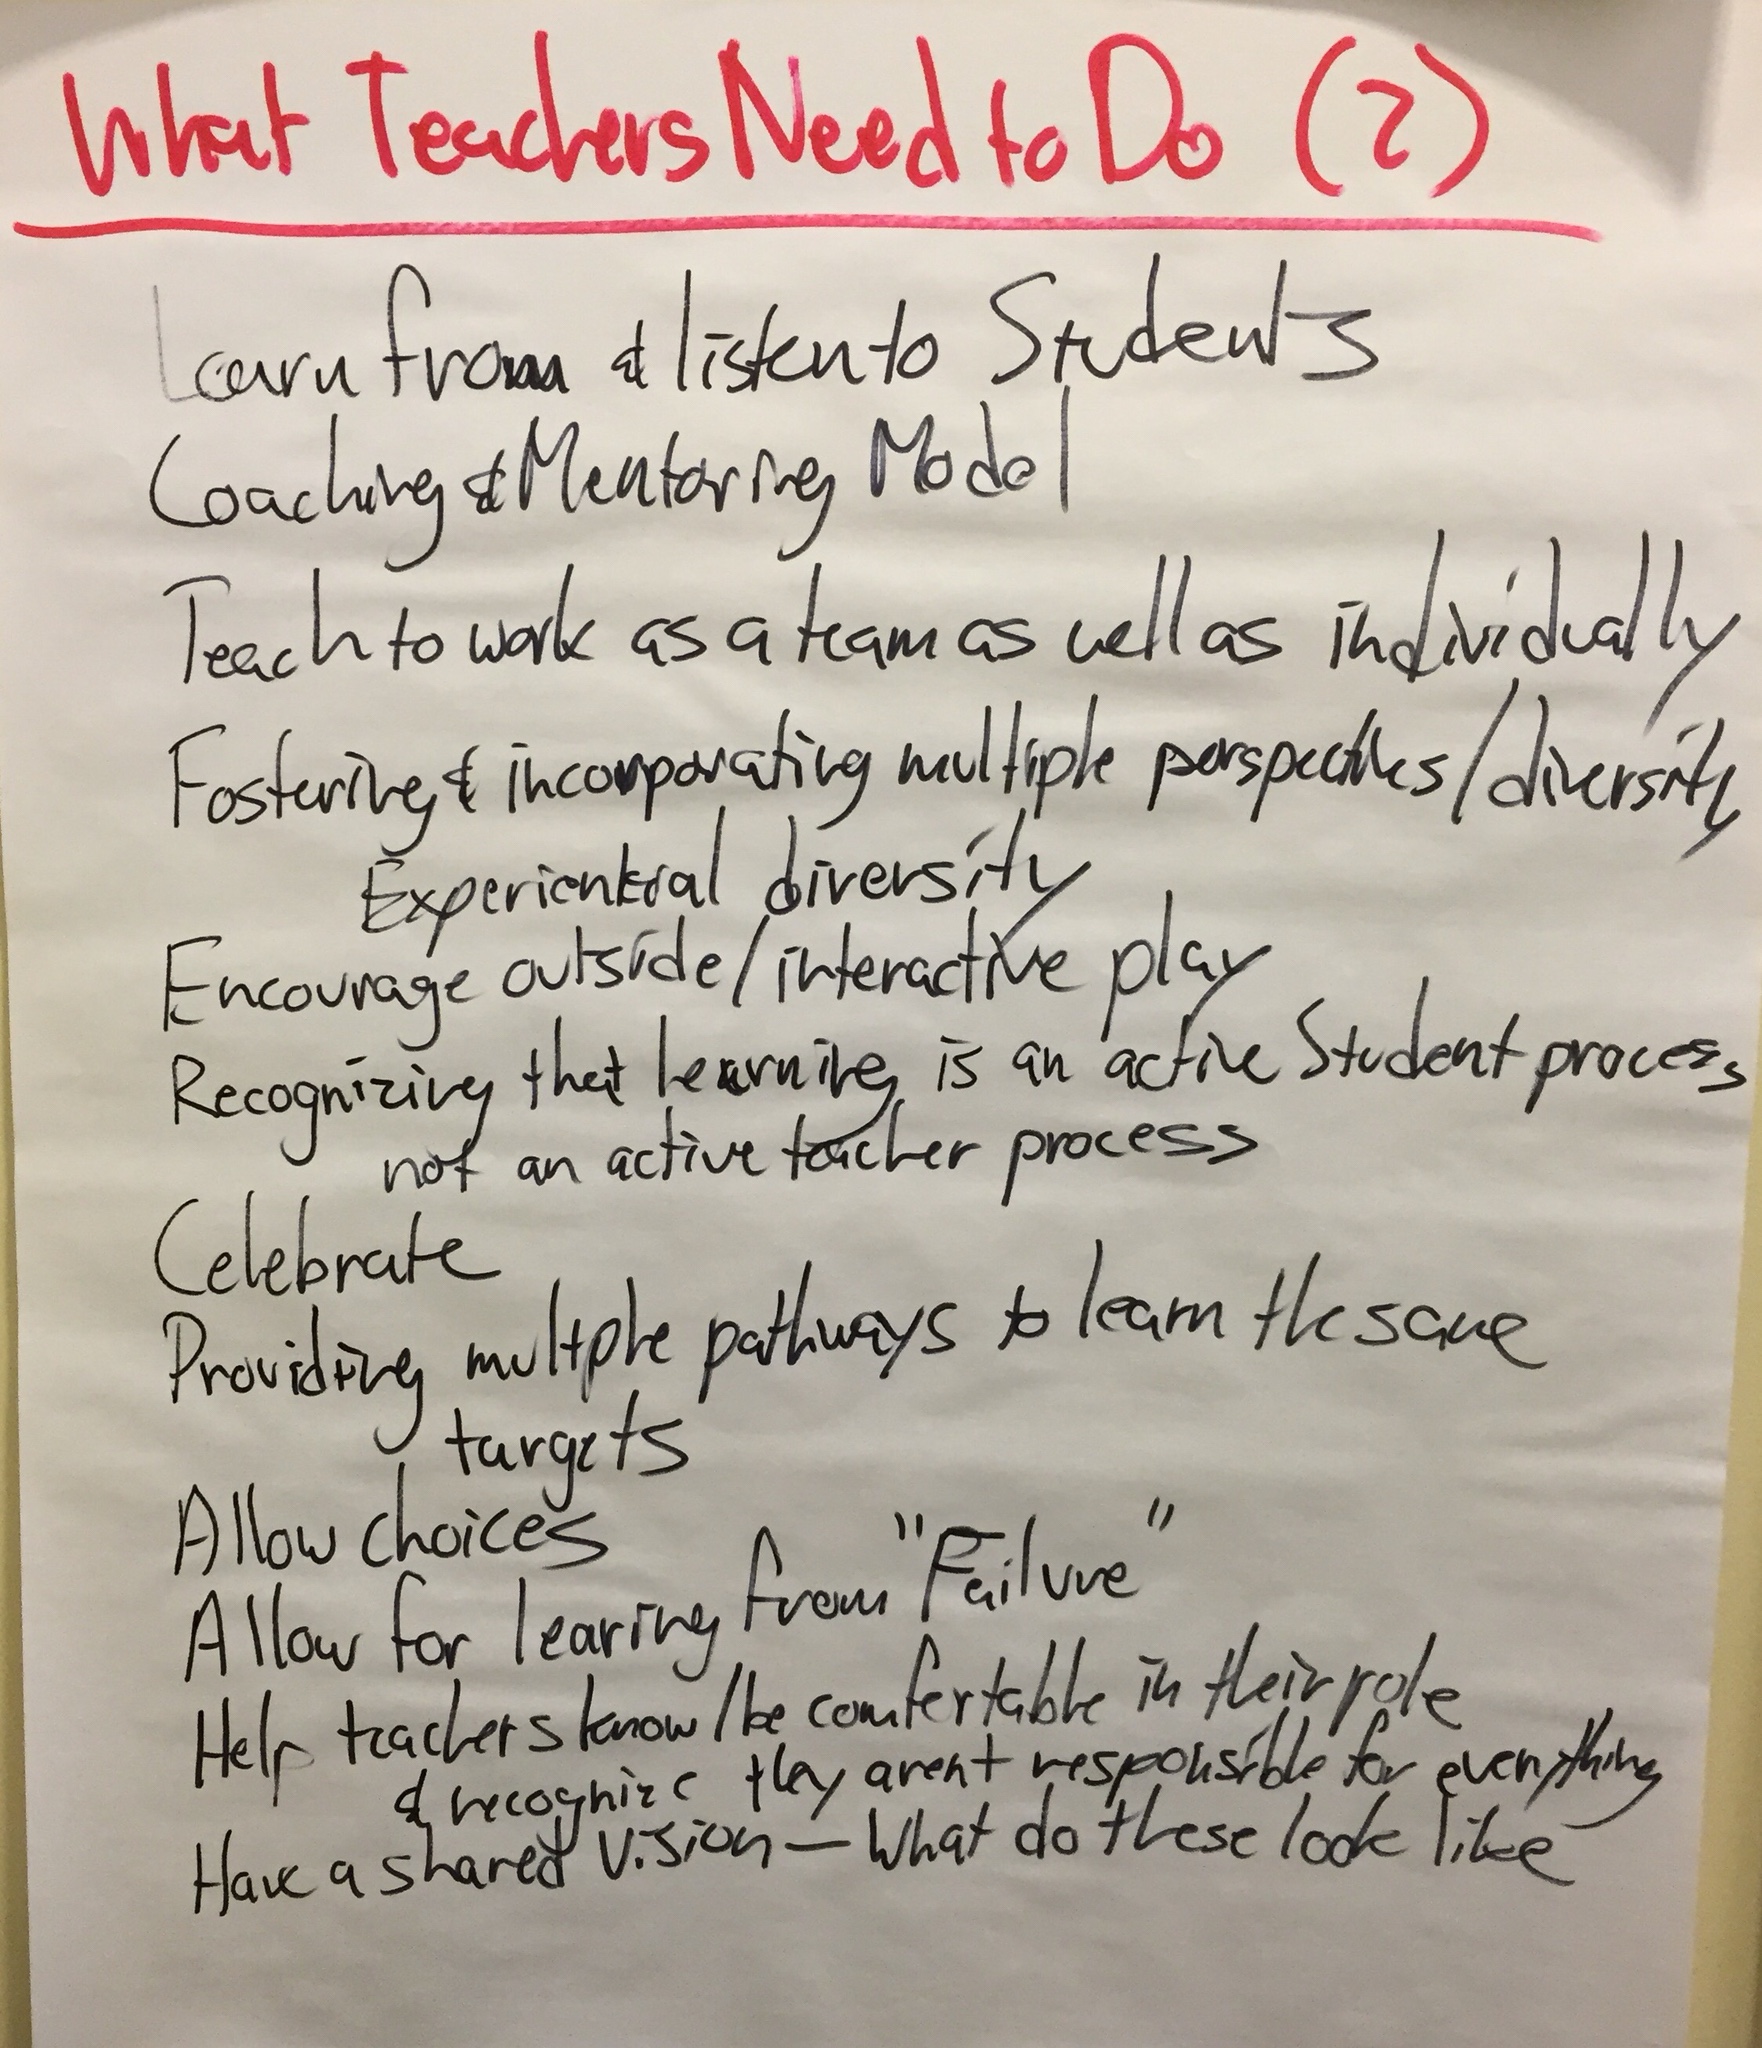 What Teachers Need to Do (2)
Learn from & listen to Students
Coaching & Mentoring Model
Teach to work as a team as well as individually
Fostering & incorporating multiple perspectives/diversity
Experiential diversity
Encourage outside/interactive play
Recognizing that learning is an active Student process
not an active teacher process
Celebrate
Providing multiple pathways to learn the same
targets
Allow choices
Allow for learing from "Failure"
Help teachers know/be comfortable in their role
& recognize they arent responsible for everything
Have a shared vision — What do these look like